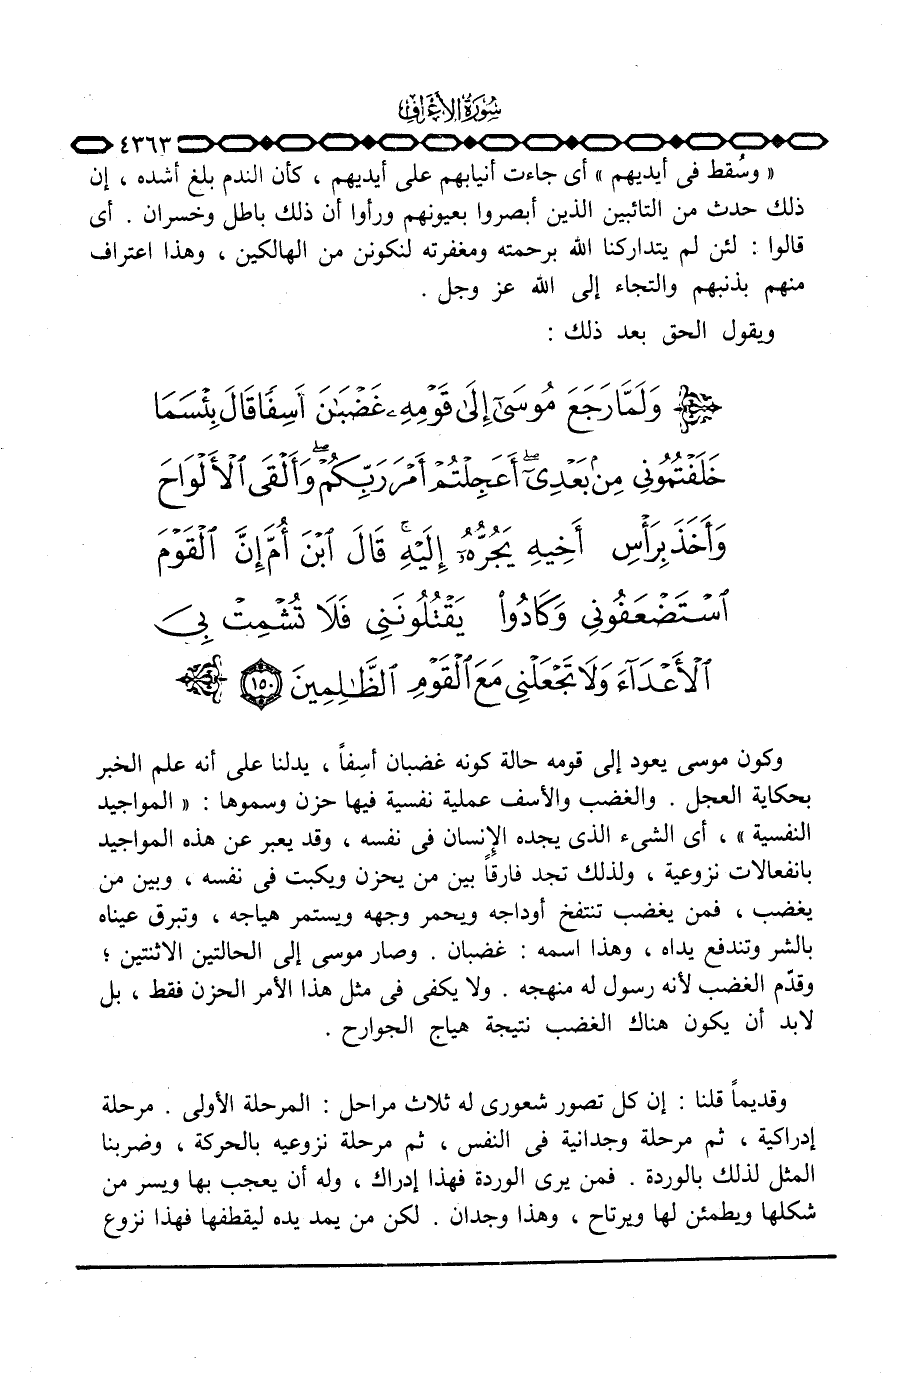 سُورَةُ الأَعْرَافِ
٤٣٦٣
« وسُقط فى أيديهم » أى جاءت أنيابهم على أيديهم ، كأن الندم بلغ أشده ، إن
ذلك حدث من التائبين الذين أبصروا بعيونهم ورأوا أن ذلك باطل وخسران . أى
قالوا : لئن لم يتداركنا الله برحمته ومغفرته لنكونن من الهالكين ، وهذا اعتراف
منهم بذنبهم والتجاء إلى الله عز وجل .
ويقول الحق بعد ذلك :
وَلَمَّا رَجَعَ مُوسَىٰٓ إِلَىٰ قَوْمِهِۦ غَضْبَٰنَ أَسِفًا قَالَ بِئْسَمَا
خَلَفْتُمُونِى مِنۢ بَعْدِىٓۖ أَعَجِلْتُمْ أَمْرَ رَبِّكُمْۖ وَأَلْقَى ٱلْأَلْوَاحَ
وَأَخَذَ بِرَأْسِ أَخِيهِ يَجُرُّهُۥٓ إِلَيْهِۚ قَالَ ٱبْنَ أُمَّ إِنَّ ٱلْقَوْمَ
ٱسْتَضْعَفُونِى وَكَادُوا۟ يَقْتُلُونَنِى فَلَا تُشْمِتْ بِىَ
ٱلْأَعْدَآءَ وَلَا تَجْعَلْنِى مَعَ ٱلْقَوْمِ ٱلظَّٰلِمِينَ ١٥٠
وكون موسى يعود إلى قومه حالة كونه غضبان أسِفاً ، يدلنا على أنه علم الخبر
بحكاية العجل . والغضب والأسف عملية نفسية فيها حزن وسموها : « المواجيد
النفسية » ، أى الشىء الذى يجده الإنسان فى نفسه ، وقد يعبر عن هذه المواجيد
بانفعالات نزوعية ، ولذلك تجد فارقاً بين من يحزن ويكبت فى نفسه ، وبين من
يغضب ، فمن يغضب تنتفخ أوداجه ويحمر وجهه ويستمر هياجه ، وتبرق عيناه
بالشر وتندفع يداه ، وهذا اسمه : غضبان . وصار موسى إلى الحالتين الاثنتين ؛
وقدّم الغضب لأنه رسول له منهجه . ولا يكفى فى مثل هذا الأمر الحزن فقط ، بل
لابد أن يكون هناك الغضب نتيجة هياج الجوارح .
وقديماً قلنا : إن كل تصور شعورى له ثلاث مراحل : المرحلة الأولى . مرحلة
إدراكية ، ثم مرحلة وجدانية فى النفس ، ثم مرحلة نزوعيه بالحركة ، وضربنا
المثل لذلك بالوردة . فمن يرى الوردة فهذا إدراك ، وله أن يعجب بها ويسر من
شكلها ويطمئن لها ويرتاح ، وهذا وجدان . لكن من يمد يده ليقطفها فهذا نزوع